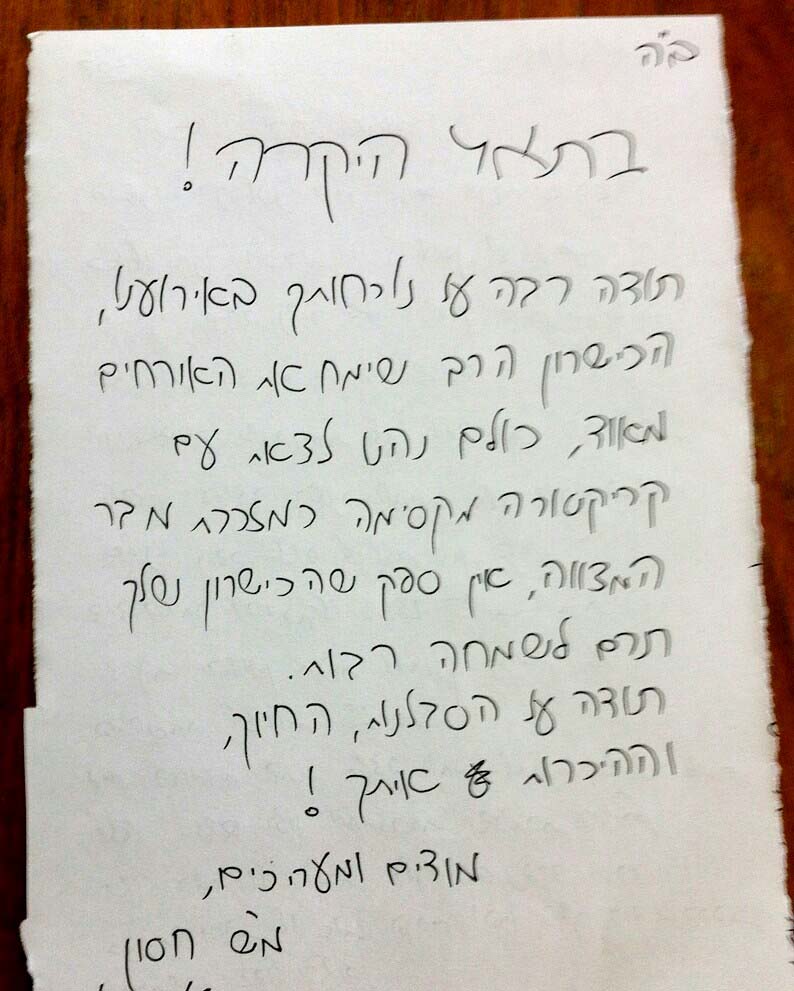 ב"ה
בתאל היקרה!
תודה רבה על נוכחותך באירוענו,
הכישרון הרב שימח את האורחים
מאוד, כולם נהנו לצאת עם
קריקטורה מקסימה כמזכרת מבר
המצווה, אין ספק שהכישרון שלך
תרם לשמחה רבות.
תודה על הסבלנות, החיוך,
וההיכרות איתך!
מודים ומעריכים,
מש' חסון